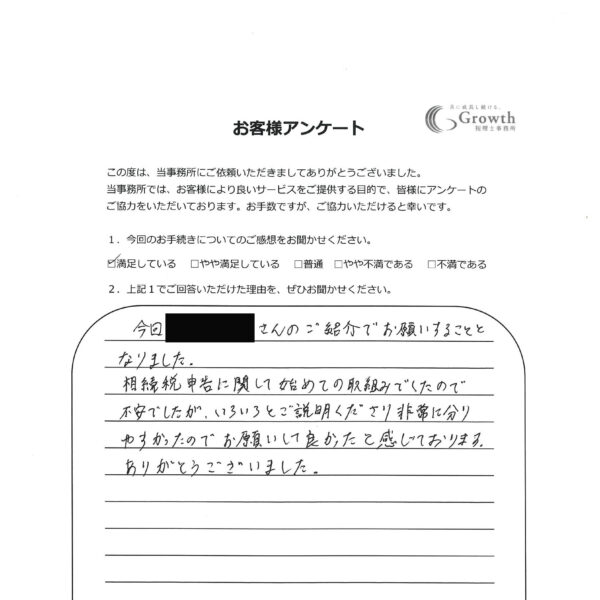 共に成長し続ける。
Growth
税理士事務所
お客様アンケート
この度は、当事務所にご依頼いただきましてありがとうございました。
当事務所では、お客様により良いサービスをご提供する目的で、皆様にアンケートの
ご協力をいただいております。お手数ですが、ご協力いただけると幸いです。
1．今回のお手続きについてのご感想をお聞かせください。
☑満足している □やや満足している □普通 □やや不満である □不満である
2．上記1でご回答いただけた理由を、ぜひお聞かせください。
今回 さんのご紹介でお願いすることと
なりました。
相続税申告に関して始めての取組みでしたので
不安でしたが、いろいろとご説明くださり非常に分り
やすかったのでお願いして良かったと感じております。
ありがとうございました。